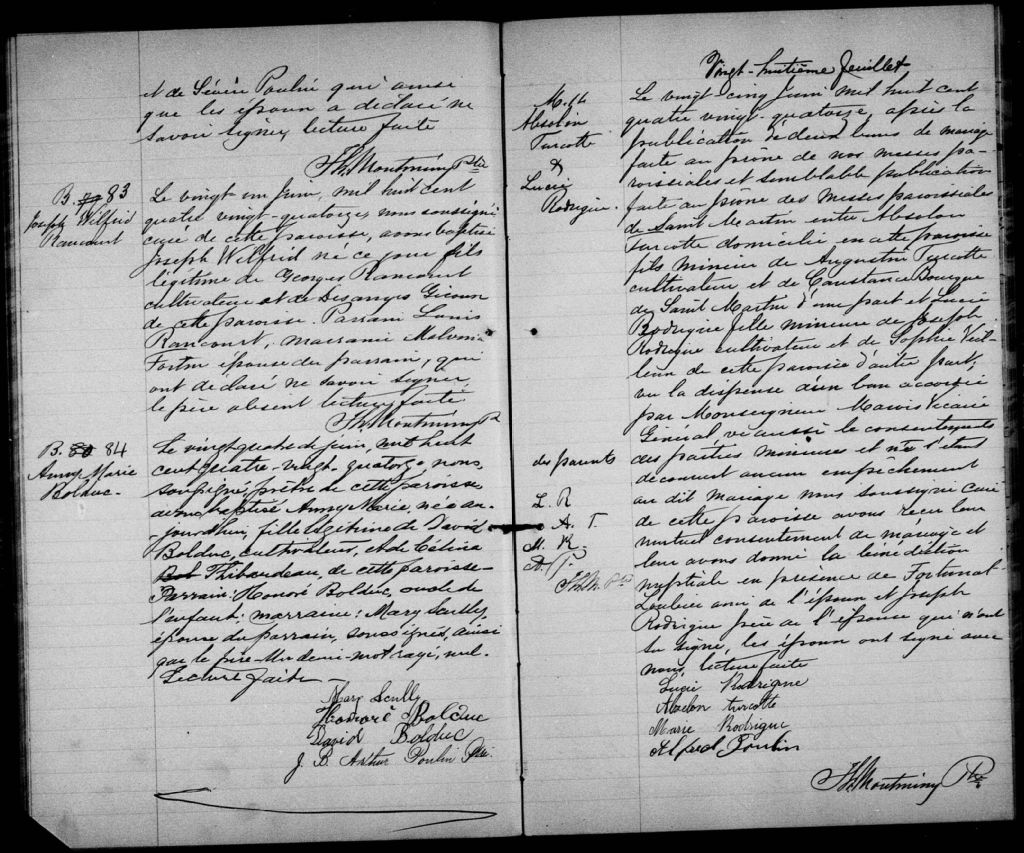 et de Sévérin Poulin qui ainsi
que les époux a déclaré ne
savoir signer lecture faite
Th. Montminy Ptre
B. 83
Joseph Wilfrid
Rancourt
Le vingt un Juin, mil huit cent
quatre vingt-quatorze nous soussigné
curé de cette paroisse, avons baptisé
Joseph Wilfrid né ce jour fils
légitime de Georges Rancourt
cultivateur et de Desanges Giroux
de cette paroisse. Parrain Louis
Rancourt, marraine Malvina
Fortin épouse du parrain, qui
ont déclaré ne savoir signer,
le père absent lecture faite
Th. Montminy Ptr
B. 80 84
Anny Marie
Bolduc.
Le vingt quatre de juin, mil huit
cent quatre-vingt-quatorze, nous
soussigné, prêtre de cette paroisse
avons baptisé Anny Marie, née au-
jourd'hui, fille légitime de David
Bolduc, cultivateur, et de Célina
Bol Thibaudeau, de cette paroisse
Parrain: Honoré Bolduc, oncle de
l'enfant; marraine: Mary Scully,
épouse du parrain, soussignés, ainsi
que le père. Un demi-mot rayé, nul.
Lecture faite
Mary Scully
Honoré Bolduc
David Bolduc
J. B. Arthur Poulin Ptre.
Vingt-huitième feuillet
M. 14
Absolon
Turcotte
&
Lucie
Rodrigue.
Le vingt-cinq Juin mil huit cent
quatre vingt-quatorze, après la
publication de deux bans de mariage
faite au prône de nos messes pa-
roissiales et semblable publication
faite au prône des messes paroissiales
de Saint Martin entre Absolon
Turcotte domicilié en cette paroisse
fils mineur de Augustin Turcotte
cultivateur et de Constance Bourque
de Saint Martin d'une part et Lucie
Rodrigue fille mineure de Joseph
Rodrigue cultivateur et de Sophie Veil-
leux de cette paroisse d'autre part;
vu la dispense d'un ban accordée
par Monseigneur Marois Vicaire
Général, vu aussi le consentement
des parents
des parties mineures et ne s'étant
découvert aucun empêchement
au dit mariage nous soussigné curé
de cette paroisse avons reçu leur
mutuel consentement de mariage et
leur avons donné la bénédiction
nuptiale en présence de Fortunat
Loubier ami de l'époux et Joseph
Rodrigue père de l'épouse qui n'ont
su signer, les époux ont signé avec
nous, lecture faite
L. R
A. T.
M. R.
A. P.
Th. M. Ptre
Lucie Rodrigue
Absolon turcotte
Marie Rodrigue
Alfred Poulin
Th. Montminy Ptre